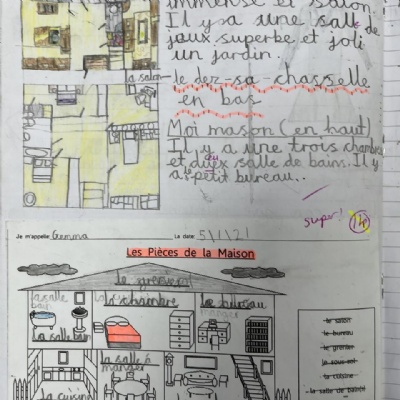 immense et salon.
Il y a une salle de
jaux superbe et joli
un jardin.
la salon
le dez-sa chasselle
en bas
Moi maison (en haut)
Il y a une trois chambre
et dues salle de bain. Il y
a le petit bureau..
super!
Je m'appelle: Gemma La date: 5/1/21
Les Pièces de la Maison
la salle bain
la chambre
le bureau
manger
la salle bain
la salle à manger
la cuisine
le salon
le bureau
le grenier
le sous-sol
la cuisine
la salle de bains